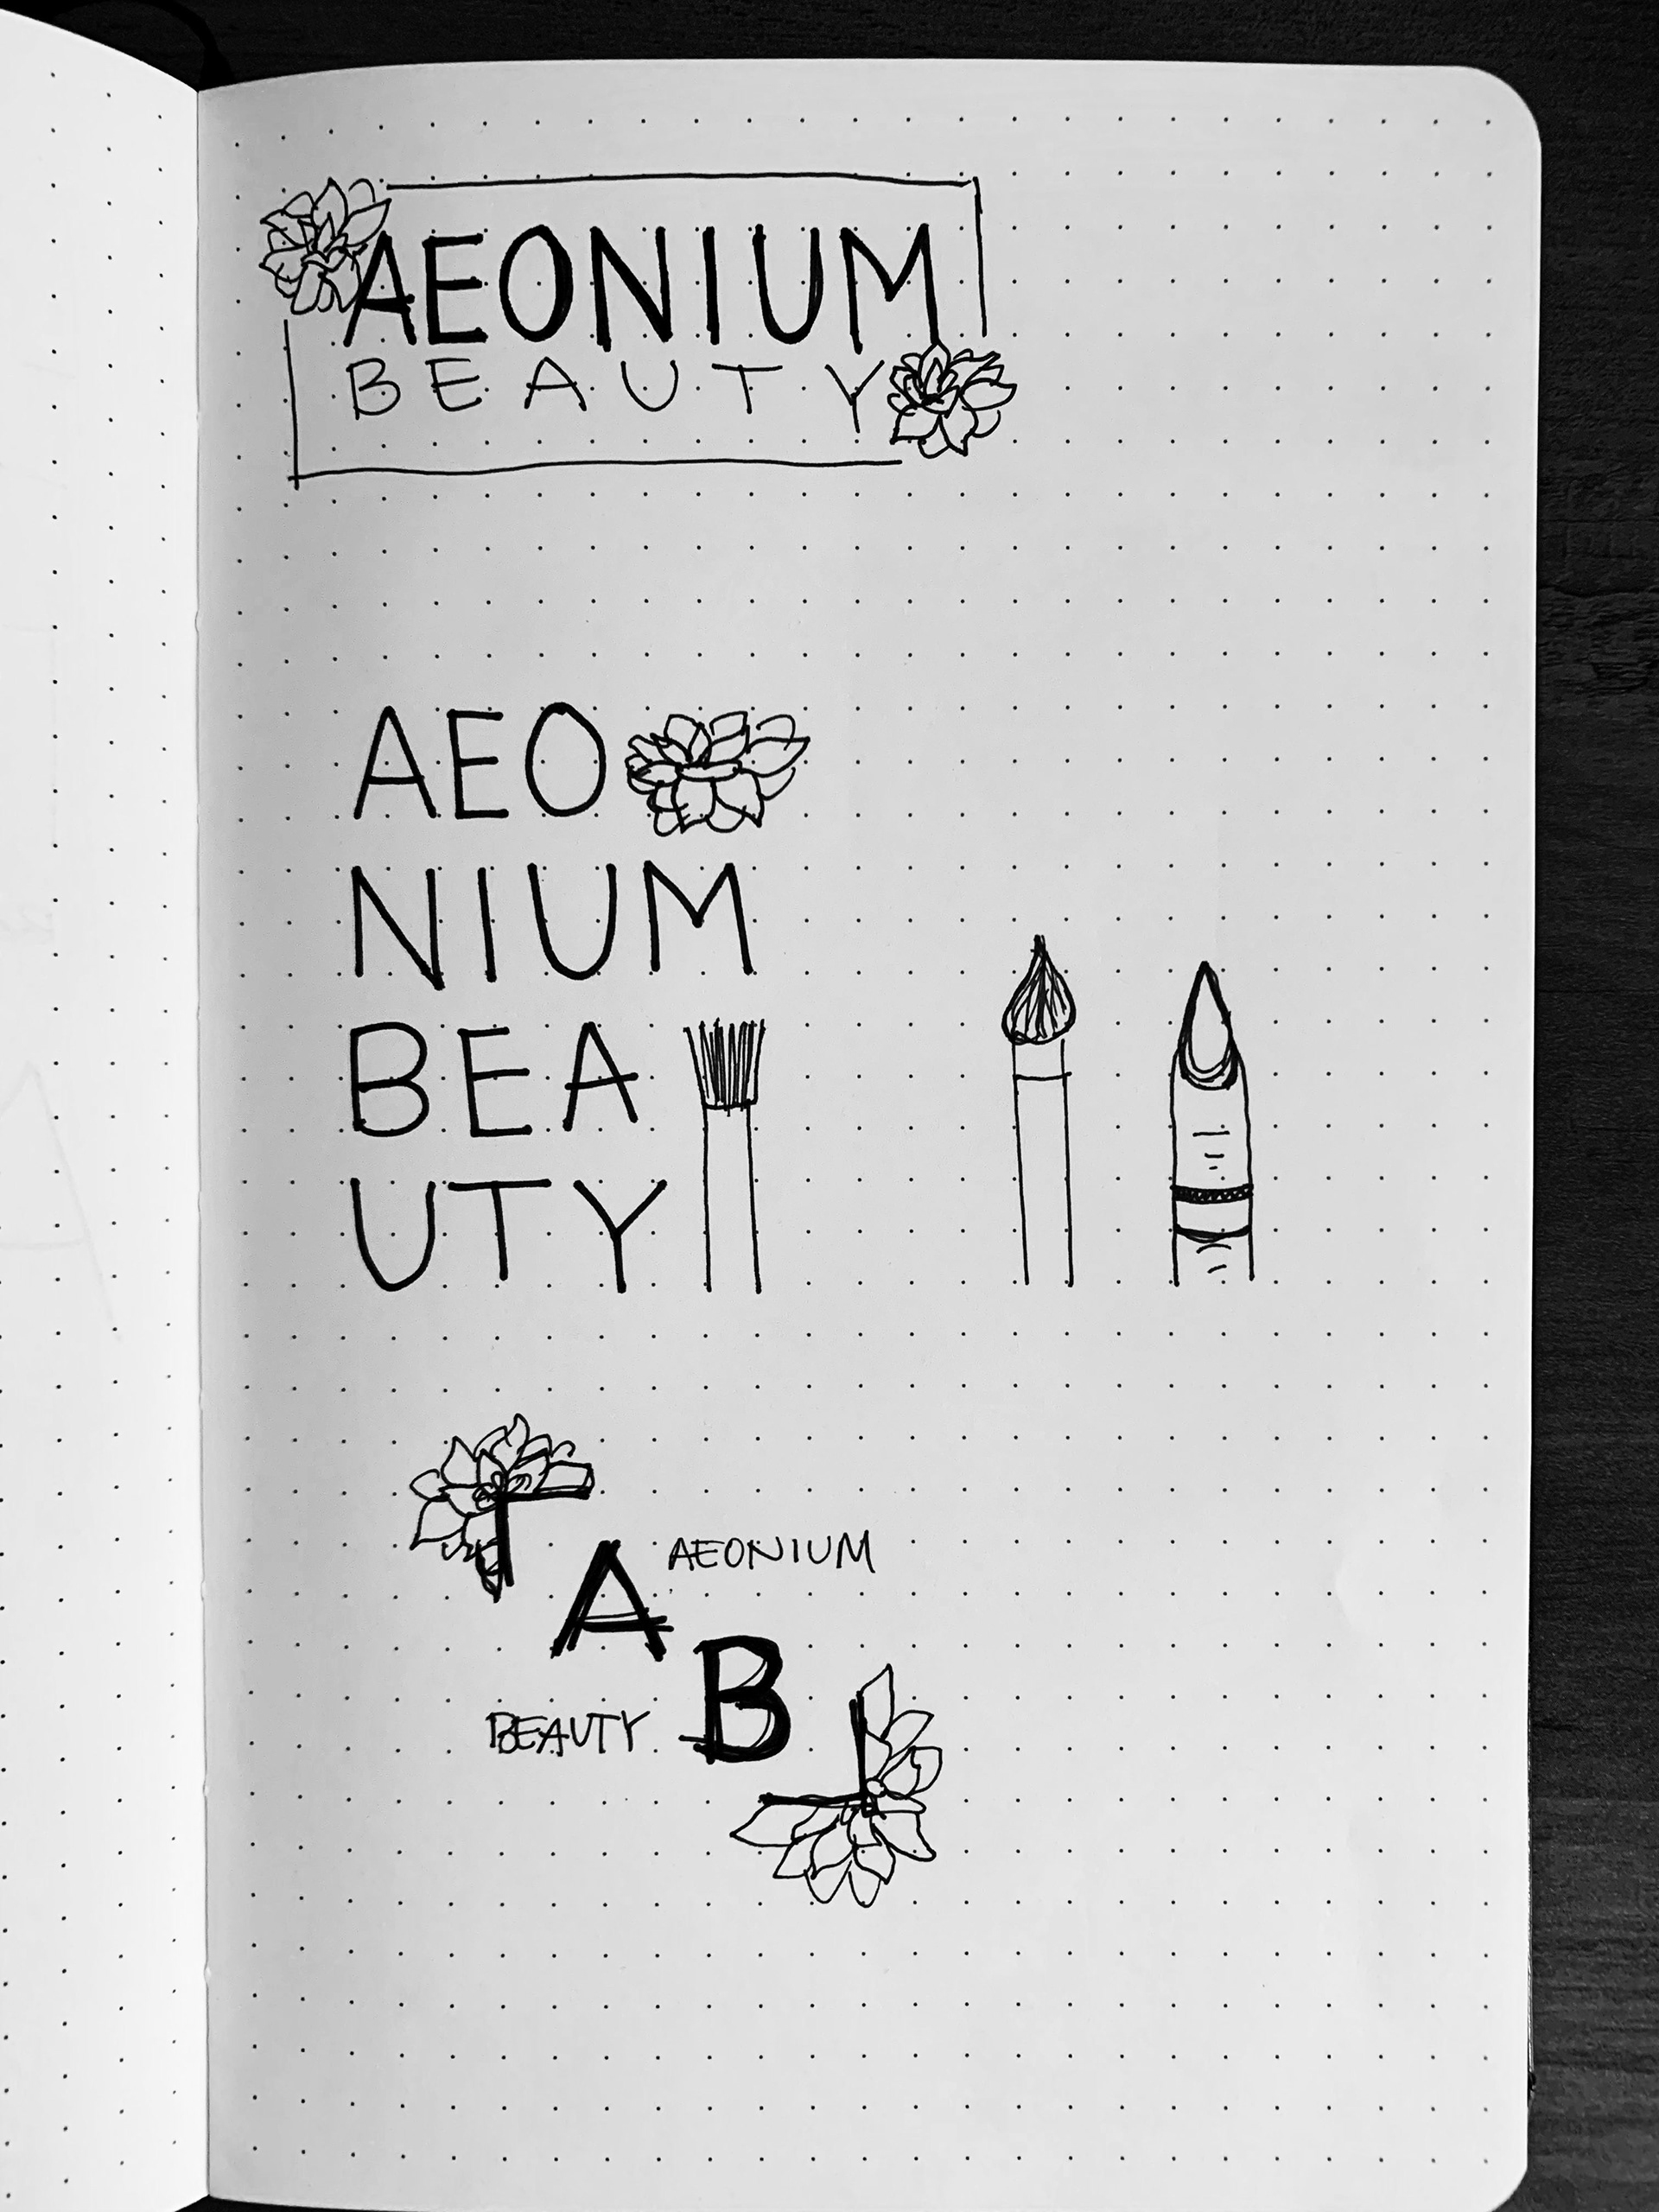 AEONIUM
BEAUTY
AEO
NIUM
BEA
UTY
A AEONIUM
BEAUTY B